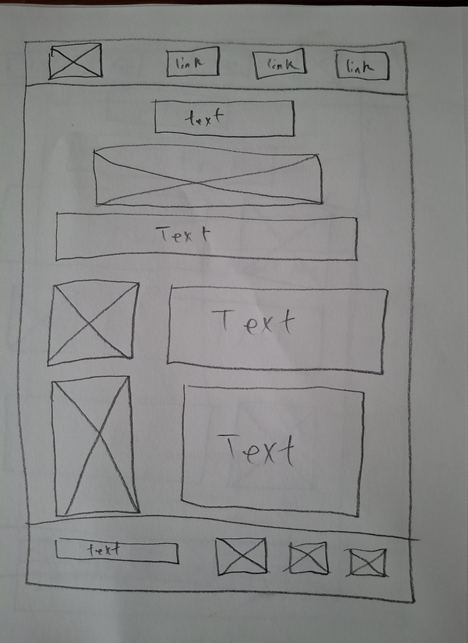 link
link
link
text
Text
Text
Text
text